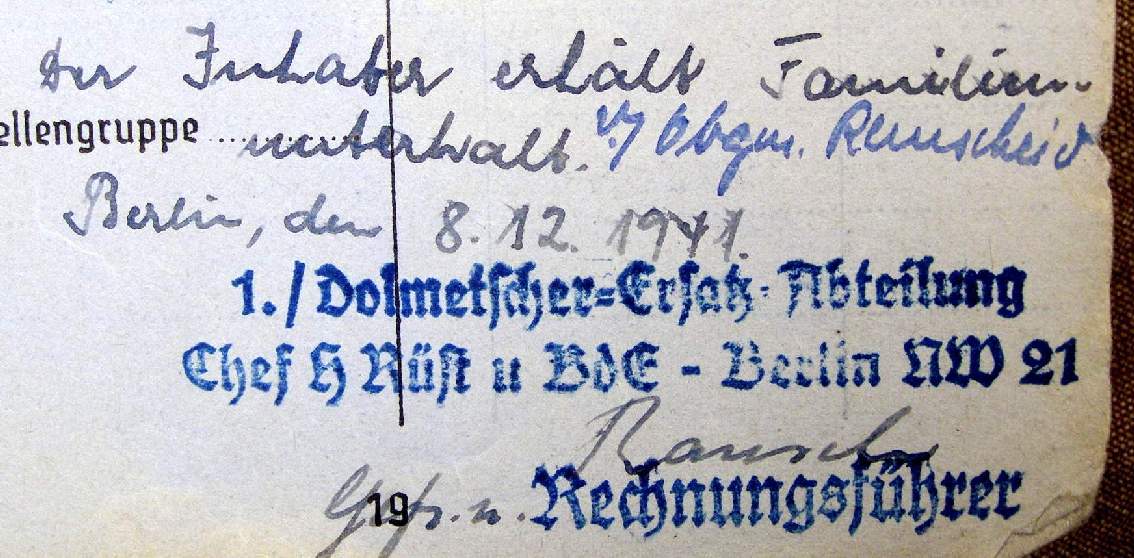 Der Inhaber erhält Familien-
ellengruppe ........ unterhalt. v/ Obgm. Remscheid
Berlin, den 8.12.1941.
1./Dolmetscher=Ersatz-Abteilung
Chef H Rüst u BdE - Berlin NW 21
Gefr. u. Rechnungsführer
19